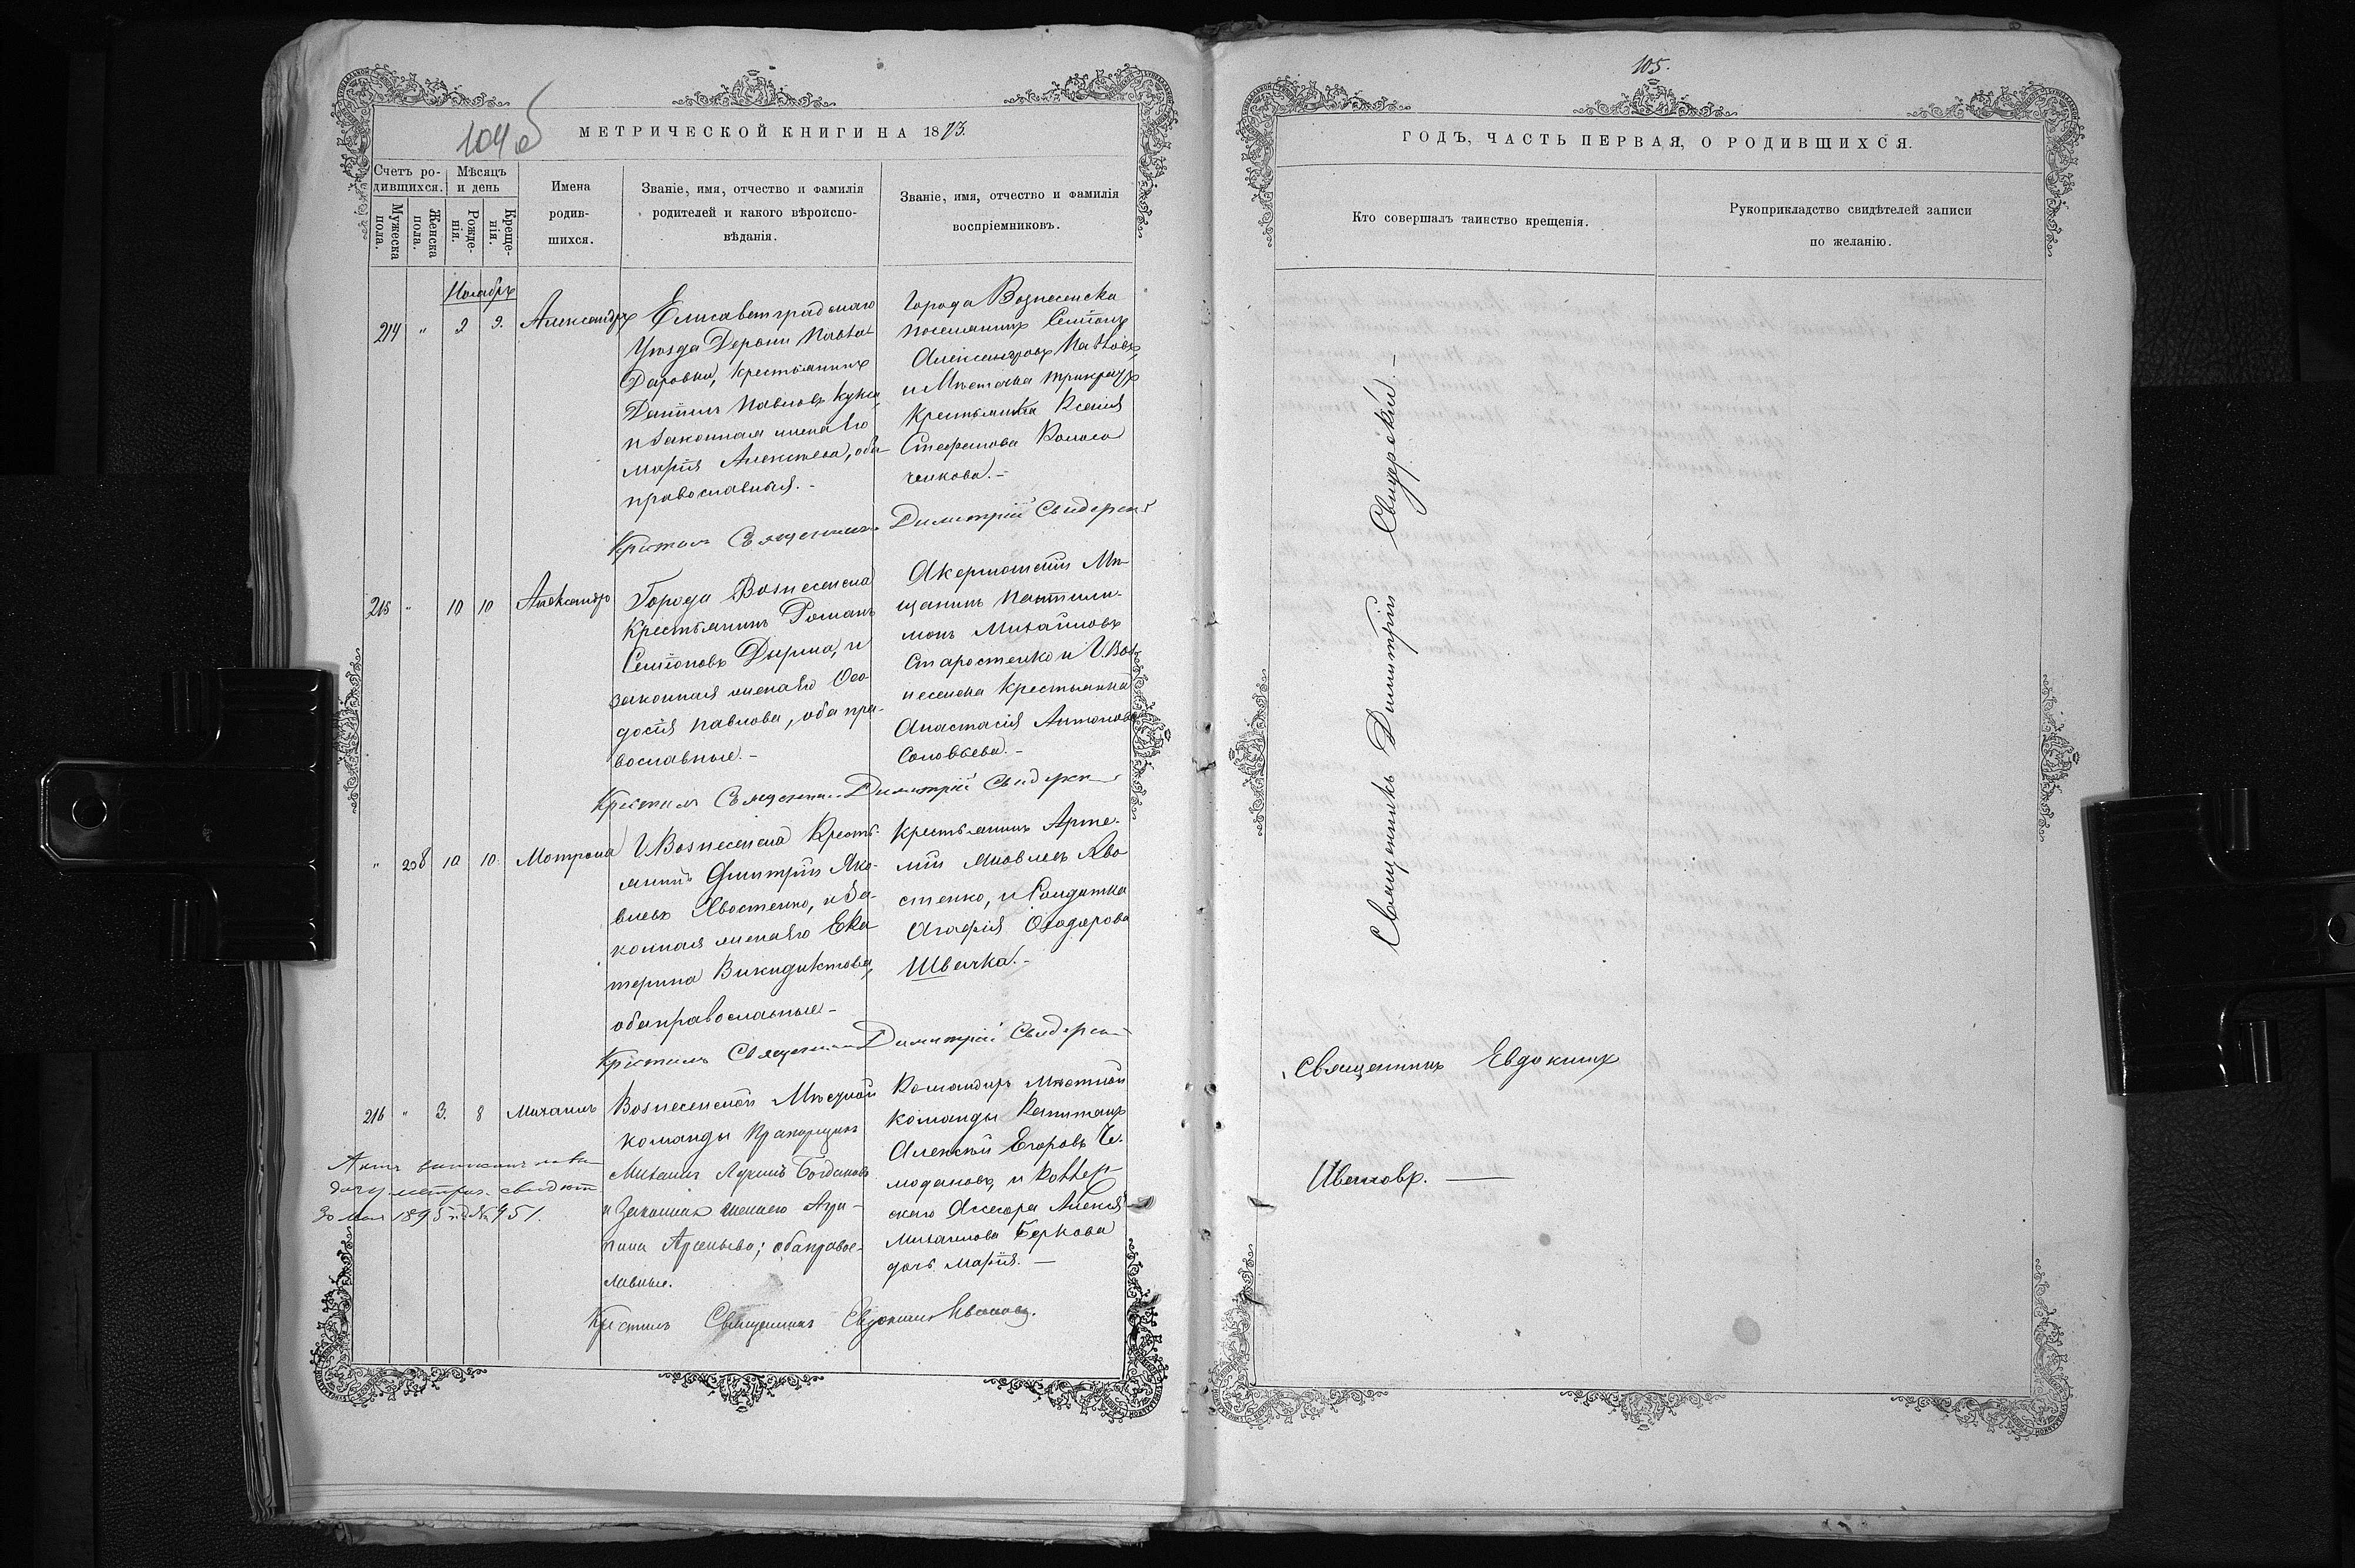 104 об
МЕТРИЧЕСКОЙ КНИГИ НА 1873.
Счетъ ро-
дившихся.
Мѣсяцъ
и день
Мужеска пола.
Женска пола.
Рожде-
нія.
Креще-
нія.
Имена
родив-
шихся.
Званіе, имя, отчество и фамилія
родителей и какого вѣроиспо-
вѣданія.
Званіе, имя, отчество и фамилія
воспріемниковъ.
Ноябрь
214 " 9 9. Александръ
Елисаветградскаго
Уѣзда Дерени
Даровки, крестьянинъ
Даніилъ Павловъ
и законная жена его
Марія Алексѣева, оба
православныя.-
Города Вознесенска
поселянинъ Семіонъ
Александровъ
и Мѣстечка
Крестьянка Ксенія
Стефанова
Крестилъ Священникъ Димитрій Свидерскій
215 " 10 10 Александръ
Города Вознесенска
Крестьянинъ Романъ
Семіоновъ Дырма, и
законная жена его Ѳео-
досія Павлова, оба пра-
вославные.-
Акерманскій Мѣ-
щанинъ Пантили-
монъ Михайловъ
Старостенко и Г. Воз-
несенска Крестьянка
Анастасія Антонова
Соловьева.-
Крестилъ Священникъ Димитрій Свидерскій
" 208 10 10. Мотрона
Г. Вознесенска Кресть-
янинъ Димитрій Яко-
влевъ Хвостенко, и За-
конная жена его Ека-
терина Викидиктова,
оба православные-
Крестьянинъ Арте-
мій Яковлевъ Хво-
стенко, и Солдатка
Агафія Ѳеодорова
Швачка.-
Крестилъ Священникъ Димитрій Свидерскій
216 " 3. 8 Михаилъ
Вознесенской Мѣстной
команды Прапорщикъ
Михаилъ Богдановъ
и Законная жена его Агри-
пина Арсеньева; оба правос-
лавные.
Командиръ Мѣстной
команды Капитанъ
Алексѣй Егоровъ Че-
модановъ, и Коллеж-
скаго Ассесора Алексѣя
Михаилова Беркова
дочь Марія.-
Актъ выписанъ на вы-
дачу метрич. свидѣт
30 мая 1895 г. № 451.
Крестилъ Священникъ Евдокимъ Ивановъ.
105.
ГОДЪ, ЧАСТЬ ПЕРВАЯ, О РОДИВШИХСЯ.
Кто совершалъ таинство крещенія.
Рукоприкладство свидѣтелей записи
по желанію.
Священникъ Димитрій Свидерскій.-
Священникъ Евдокимъ
Ивановъ.-